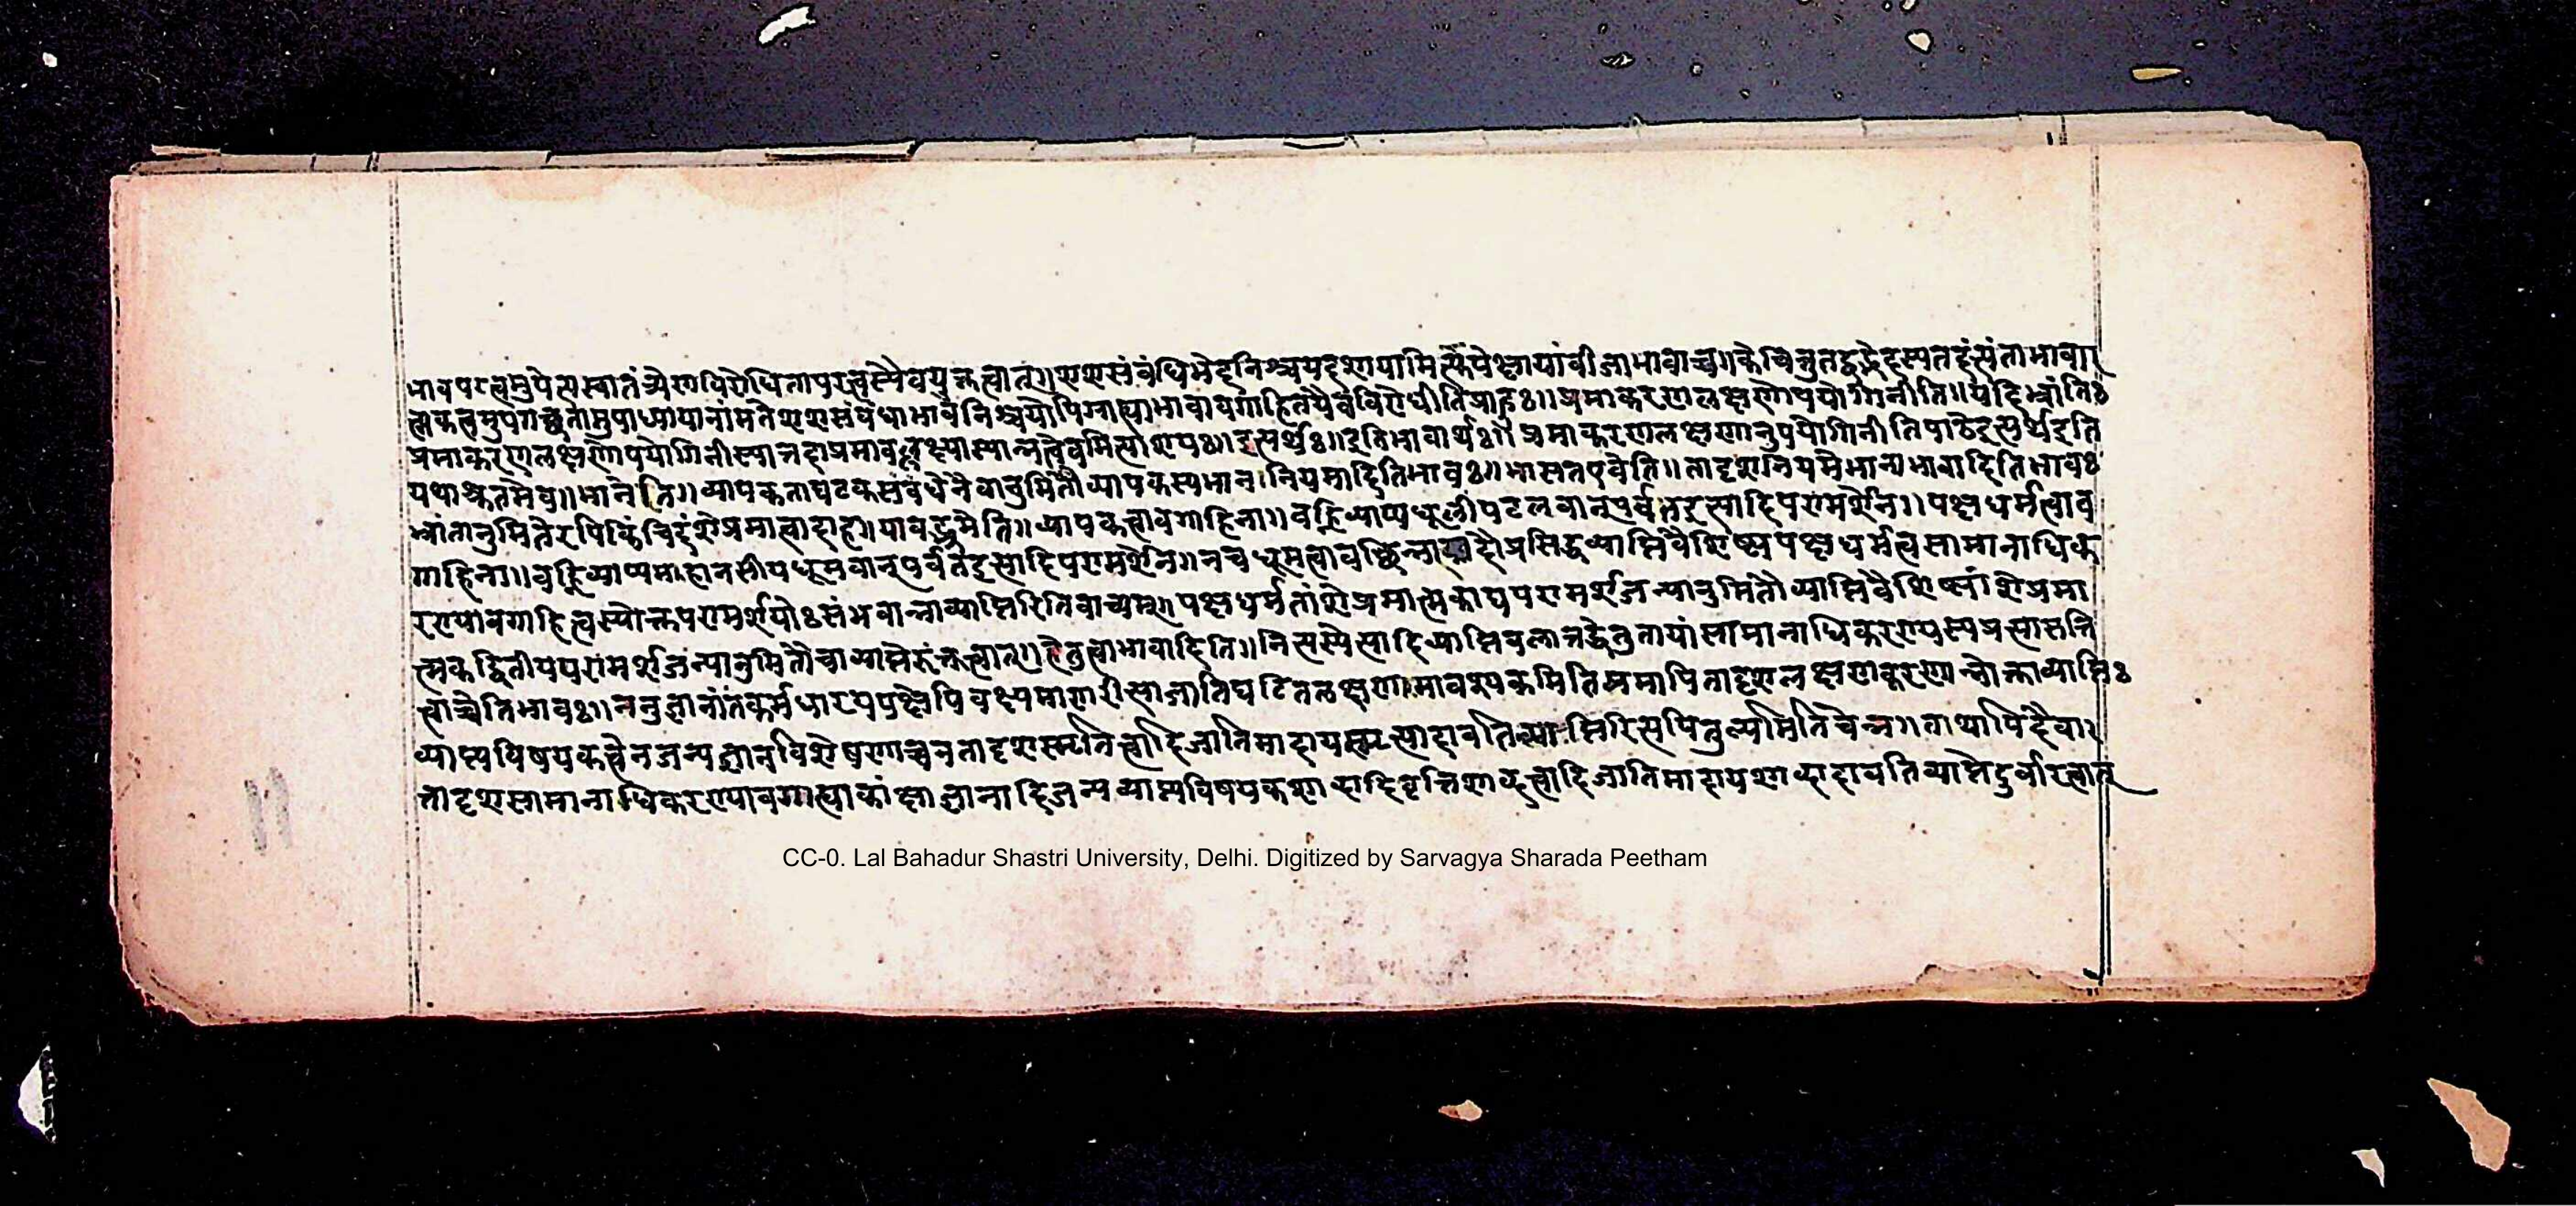 भावपरत्वमुपेत्य स्वातंत्र्येण विरोधितापरत्वस्यैव युक्तत्वात्॥ शशसंबंधिभेदनिश्चयदशायामित्यपेक्षायां बीजाभावाच्च॥ केचित्तु तद्वद्भेदस्य तदत्यंताभावा
त्मकत्वमुपगच्छतामुपाध्यायानां मते शशसंबंधाभावनिश्चयोपि ग्राह्याभावावगाहितयैव विरोधीति प्राहुः॥ प्रमाकरणलक्षणोपयोगिनीति॥ यदि भ्रांतिः
प्रमाकरणलक्षणोपयोगिनी स्यात्तदा प्रमावल्लक्ष्या स्यान्नत्वेवमित्याशयः॥ इत्यर्थः॥ इति भावार्थः॥ प्रमाकरणलक्षणानुपयोगिनीति पाठे इत्यर्थ इति
यथाश्रुतमेव॥ भानेति॥ व्यापकताघटकसंबंधेनैवानुमितौ व्यापकस्य भाननियमादिति भावः॥ भासत एवेति॥ तादृशनियमे मानाभावादिति भावः
भ्रांतानुमितेरपि किंचिदंशे प्रमात्वादाह॥ यावद्धूमेति॥ व्यापकत्वावगाहिना॥ वह्निव्याप्यधूलीपटलवान्पर्वत इत्यादिपरामर्शेन॥ पक्षधर्मत्वाव
गाहिना॥ वह्निव्याप्यमहानसीयधूमवान्पर्वत इत्यादिपरामर्शेन॥ न च धूमत्वावच्छिन्न प्रसिद्धव्याप्तिवैशिष्ट्यपक्षधर्मत्वसामानाधिक
रण्यावगाहित्वस्योक्तपरामर्शयोः संभवान्नाव्याप्तिरिति वाच्यम्॥ पक्षधर्मतांशे प्रमात्मकाद्यपरामर्शजन्यानुमितौ व्याप्तिवैशिष्ट्यांशे प्रमा
त्मकद्वितीयपरामर्शजन्यानुमितौ चाव्याप्ते त्वात्॥ हेतुत्वाभावादिति॥ नित्यस्येत्यादिव्याप्तिबलात्तद्धेतुतायां सामानाधिकरण्यस्य प्रत्यासत्ति
त्वाच्चेति भावः॥ ननु ज्ञानांतकर्मधारयपक्षेपि वक्ष्यमाणरीत्या जातिघटितलक्षणमावश्यकमिति ममापि तादृशलक्षणकरणान्नोक्ताव्याप्तिः
व्याप्यविषयकत्वेन जन्यज्ञानविशेषणाच्च न तादृशस्मृतित्वादिजातिमादाय स्मृत्यादावतिव्याप्तिरित्यपि तुल्यमिति चेन्न॥ तथापि
तादृशसामानाधिकरण्यावगाह्याकांक्षाज्ञानादिजन्यव्याप्यविषयकशाब्दादिवृत्तिशाब्दत्वादिजातिमादाय शाब्दादावतिव्याप्तेर्दुर्वारत्वात्
CC-0. Lal Bahadur Shastri University, Delhi. Digitized by Sarvagya Sharada Peetham